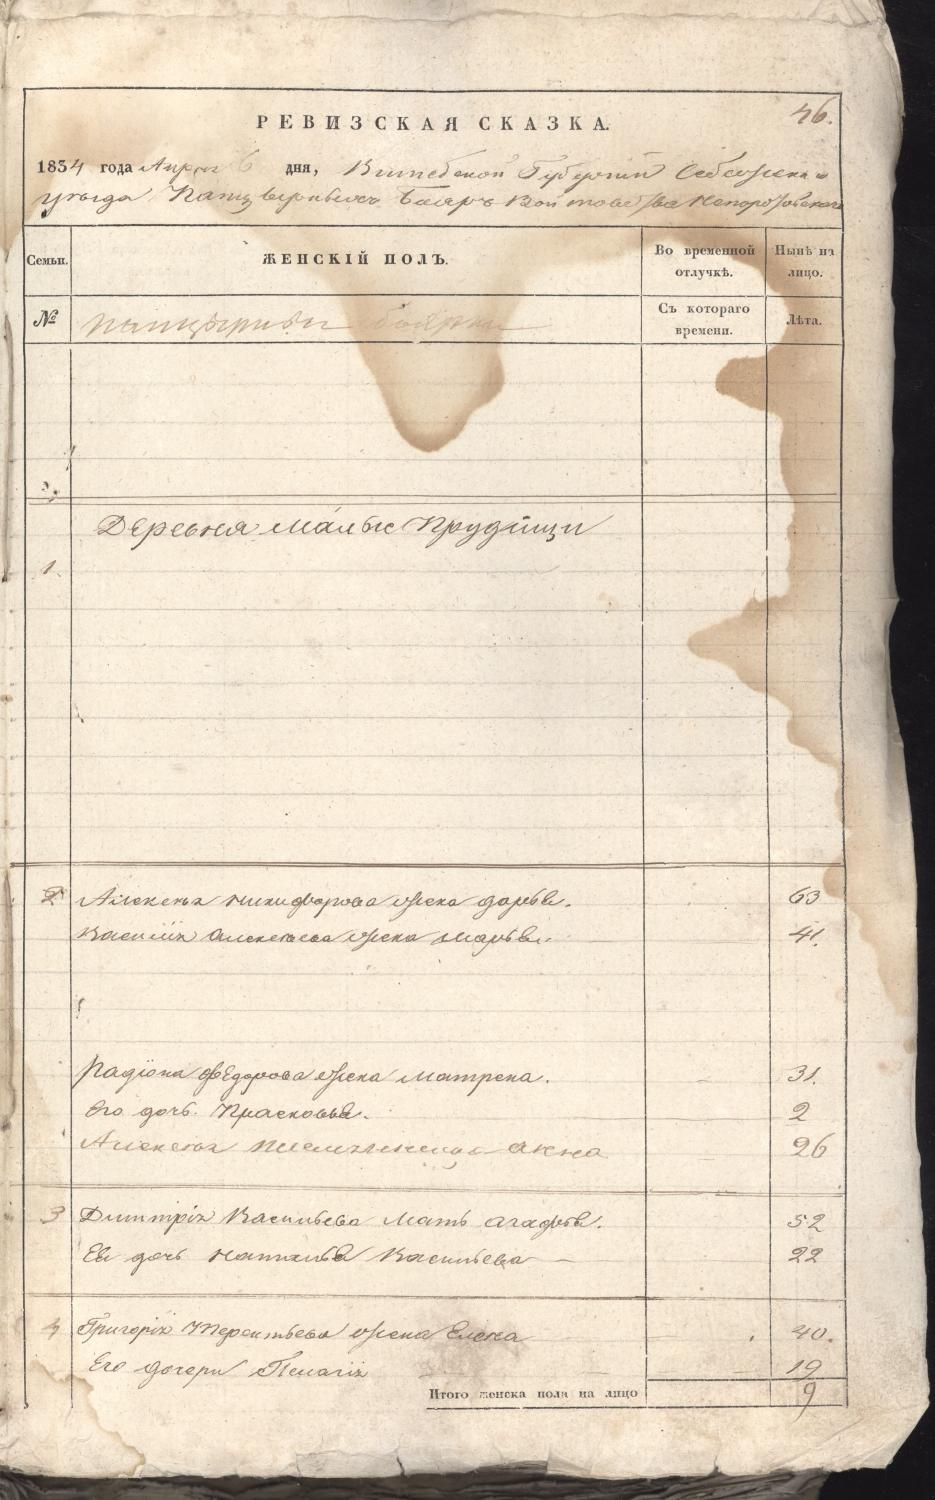 46.
РЕВИЗСКАЯ СКАЗКА.
1834 года Апреля 6 дня, Витебской Губернии Себежскаго
уезда Панцырныхъ Бояръ Войтовства Непоротовскаго
Семьи.
ЖЕНСКІЙ ПОЛЪ.
Во временной отлучкѣ.
Нынѣ на лицо.
№
панцырныи боярки
Съ котораго времени.
Лѣта.
Деревня Малые Прудищи
1
2 Алексея Никифорова жена Дарья. 63
Василія Алексеева жена Марья. 41.
Радіона Федорова жена Матрена. 31.
Его дочь Прасковья. 2
Алексея Анна 26
3 Дмитрія Васильева мать Агафья. 52
Ея дочь Наталья Васильева 22
4 Григорія Терентьева жена Елена 40.
Его дочери Пелагія 19
Итого женска пола на лицо 9